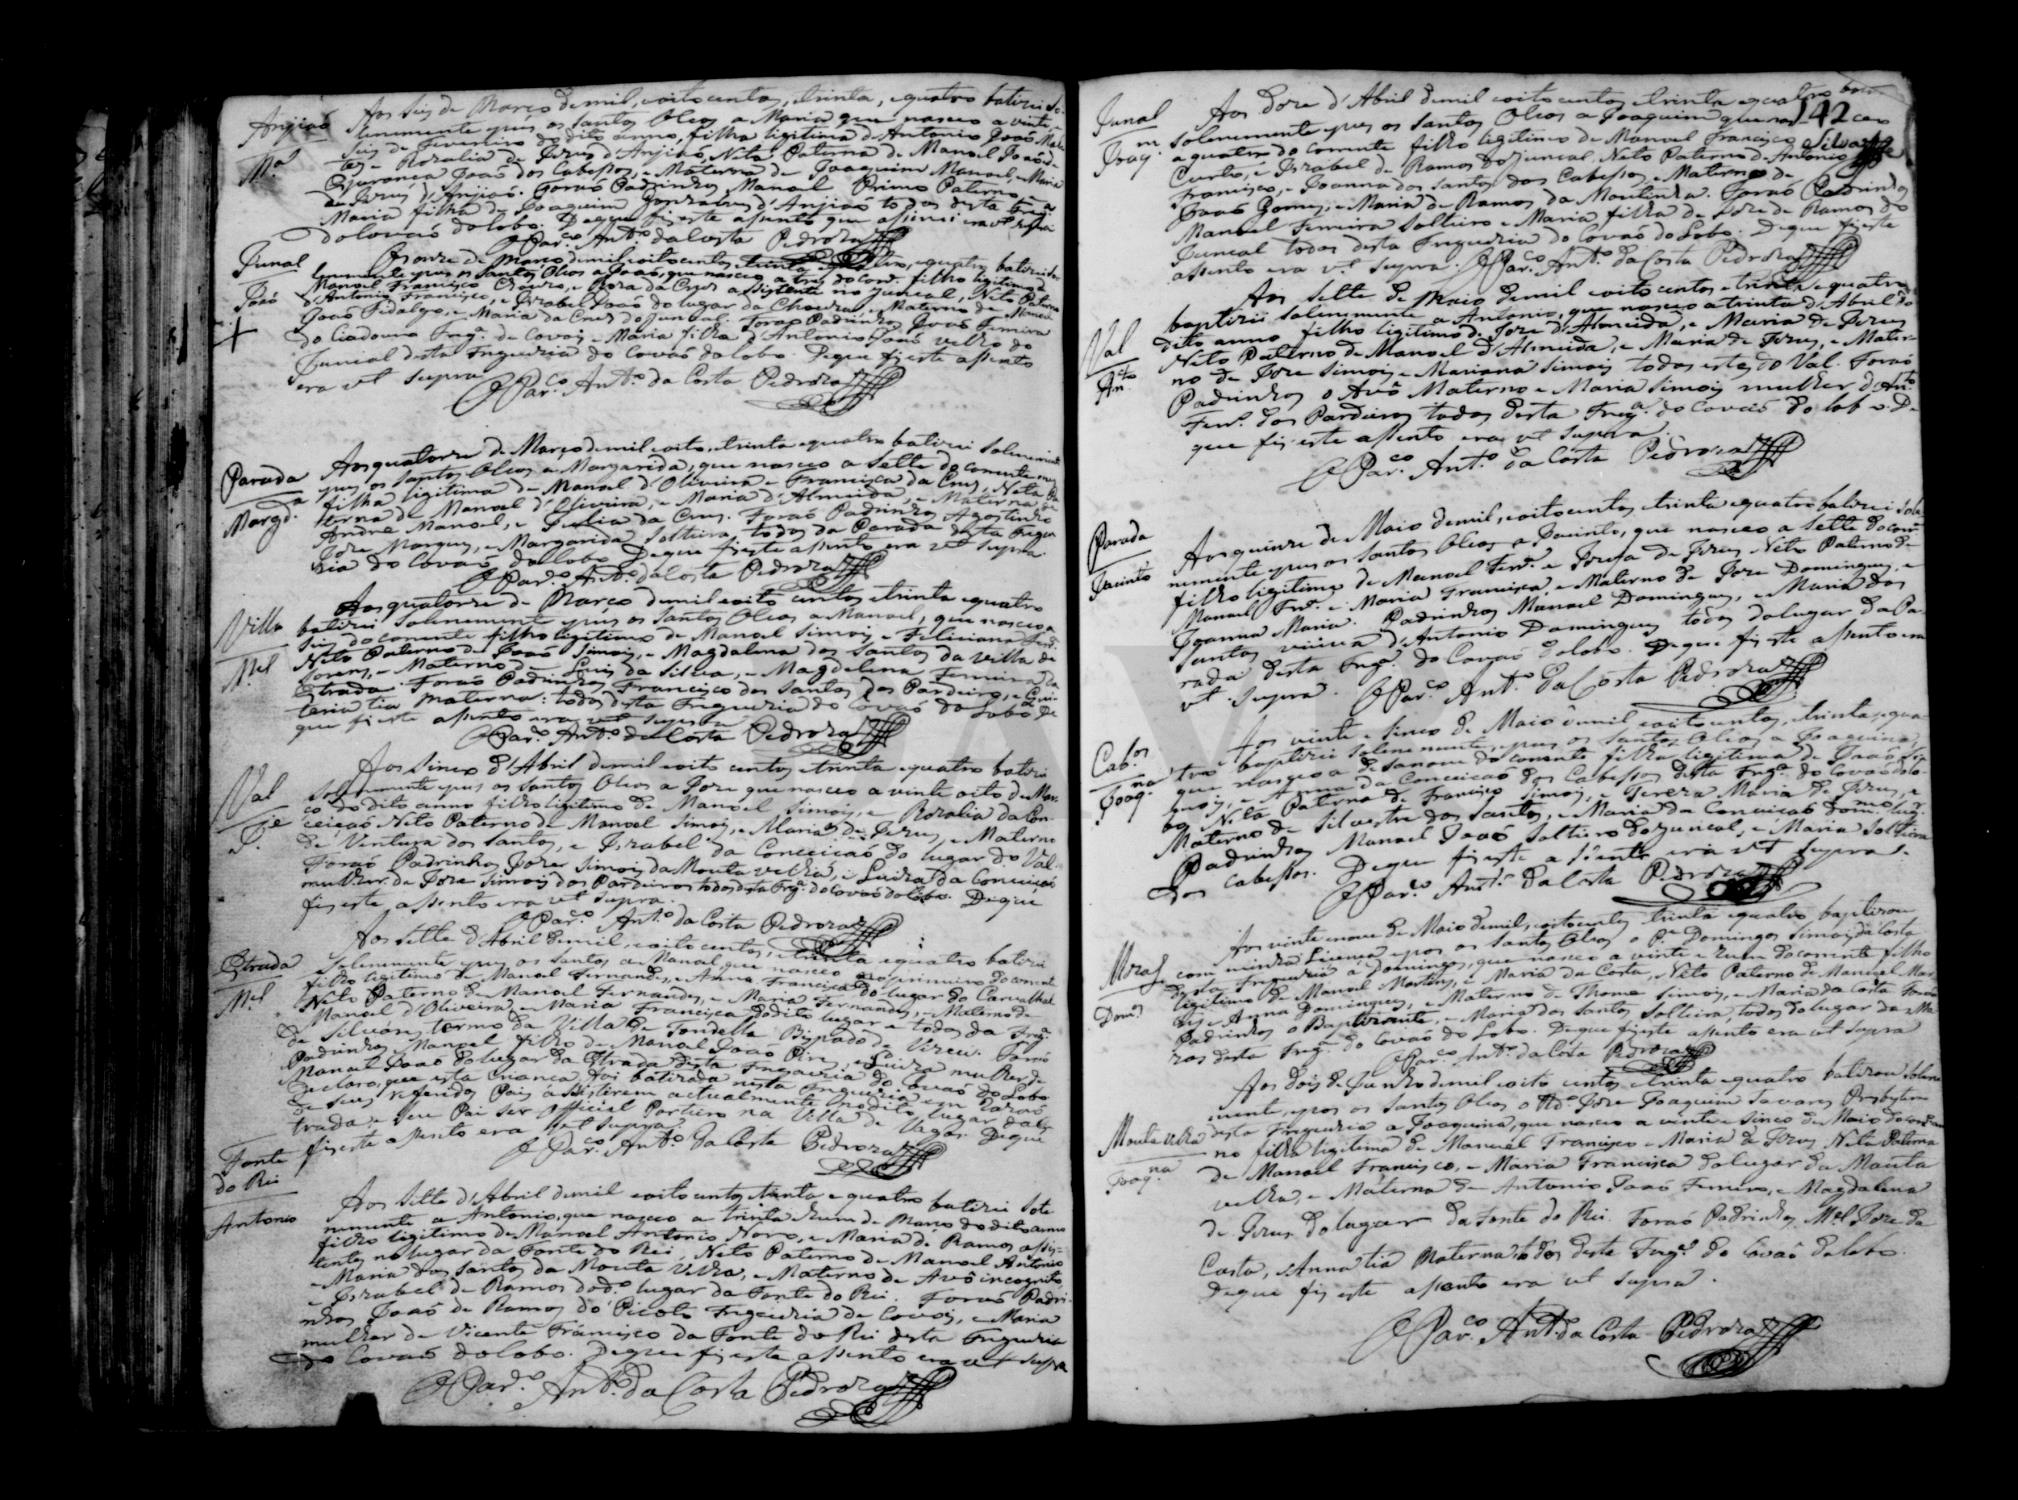 Anjiaõ
Mª
Aos seis de Março de mil, oito centos, trinta, equatro batizei so-
lenemente epus os santos Oleos a Maria que nasceo a vinte
seis de Fevereiro do dito anno, filha legitima d'Antonio Joaõ
e Rozalia de Jezus d'Anjiaõ, Neta Paterna de Manoel Joaõ
Joaõ dos Cabessos, e Materna de Joaquim Manoel, e Maria
de Jezus d'Anjiaõ. Foraõ Padrinhos Manoel Primo Paterno, e
Maria filha de Joaquim Gonzalves d'Anjiaõ todos desta Freg.ª
do Covaõ do Lobo. Deque fiz este assento que assinei era ut supra
O Par.co Ant.º da Costa Pedroza
Junal
Joaõ
Aos onze de Março de mil oito centos, trinta, equatro batizei so-
lenemente epus os Santos Oleos a Joaõ, que nasceo a tres do corr.e filho legitimo de
Manoel Francisco Chouza, e Roza da Cruz assistente no Juncal, Neto Paterno
d'Antonio Francisco, e Izabel Joaõ do lugar da Chouza, e Materno de Manoel
Joaõ Fidalgo, e Maria da Cruz do Juncal. Foraõ Padrinhos Joaõ Ferreira
do Ciadouro Freg.ª de Covoẽs e Maria filha d'Antonio Joaõ velho do
Juncal desta Freguezia do Covaõ do Lobo. Deque fiz este assento
era ut supra
O Par.co Ant.º da Costa Pedroza
Parada
Margd.ª
Aos quatorze de Março de mil oito, trinta equatro batizei solenemente
epus os santos Oleos a Margarida, que nasceo a sette do corrente
filha legitima de Manoel d'Oliveira e Francisca da Cruz, Neta Pa-
terna de Manoel d'Oliveira, e Maria d'Almeida, e Materna de
Andre Manoel, e Julia da Cruz. Foraõ Padrinhos Agostinho
Joze Marques, e Margarida solteira, todos da Parada desta Fregue-
zia do Covaõ do Lobo. Deque fiz este assento era ut supra.
O Par.co Ant.º da Costa Pedroza
Villa
M.el
Aos quatorze de Março de mil oito centos, etrinta equatro
batizei solenemente epus os santos Oleos a Manoel, que nasceo a
seis do corrente filho legitimo de Manoel Simoẽs e Feliciana
Neto Paterno de Joaõ Simoẽs, e Magdalena dos Santos da Villa de
Sorens, e Materno de Luis da Silva, e Magdalena Ferreira da
Estrada. Foraõ Padrinhos Francisco dos Santos dos Pardeiros, e Qui-
teria tia Materna: todos desta Freguezia do Covaõ do Lobo. De
que fiz este assento era ut supra
O Par.co Ant.º da Costa Pedroza
Val
J.e
Aos sinco d'Abril de mil oito centos etrinta equatro batizei
solenemente epus os santos Oleos a Joze que nasceo a vinte oito de Mar-
co do dito anno filho legitimo de Manoel Simoẽs, e Rozalia da Con-
ceicaõ Neto Paterno de Manoel Simoẽs, e Maria de Jezus, e Materno
de Ventura dos Santos, e Izabel da Conceicaõ do lugar do Val.
Foraõ Padrinhos Joze Simoẽs da Mouta velha, e Luiza da Conceicaõ
mulher de Joze Simoẽs dos Pardeiros todos desta Freg.ª do Covaõ do Lobo. Deque
fiz este assento era ut supra.
O Par.co Ant.º da Costa Pedroza
Estrada
M.el
Aos sette d'Abril de mil, oito centos, etrinta equatro batizei
solenemente epus os santos a Manoel que nasceo no primeiro do corrente
filho legitimo de Manoel Fernandes, e Anna Francisca do lugar do Carvalhal
Neto Paterno de Manoel Fernandes, e Maria Fernandes, e Materno de
Manoel d'Oliveira e Maria Francisca do dito lugar e todos da Freg.ª
de Silvares termo da Villa de Tondella Bispado de Vizeu. Foraõ
Padrinhos Manoel filho de Manoel Joaõ Pires, e Luiza mulher de
Manoel Joaõ do lugar da Estrada desta Freguezia do Covaõ do Lobo
Declaro, que esta crianca foi batizada nesta Freguezia em razaõ
de seus referidos Pais assistirem actualmente no dito lugar da Es-
trada e seu Pai ser Official Porteiro na Villa de Vagos. Deque
fiz este assento era ut supra
O Par.co Ant.º da Costa Pedroza
Fonte
do Rei
Antonio
Aos sette d'Abril de mil oito centos, trinta e quatro batizei sole-
nemente a Antonio, que nasceo a trinta ehum de Março do dito anno
filho legitimo de Manoel Antonio Novo, e Maria de Ramos assis-
tentes no lugar da Fonte do Rei, Neto Paterno de Manoel Antonio
e Maria dos Santos da Mouta Velha, e Materno de Avô incognito
e Izabel de Ramos do d.º lugar da Fonte do Rei. Foraõ Padri-
nhos Joaõ de Ramos do Picoto Freguezia de Covoẽs, e Maria
mulher de Vicente Francisco da Fonte do Rei desta Freguezia
do Covaõ do Lobo. Deque fiz este assento era ut supra
O Par.co Ant.º da Costa Pedroza
142
Junal
Joaq.m
Aos doze d'Abril de mil oito centos etrinta equatro
solenemente epus os santos Oleos a Joaquim que nasceo
a quatro do corrente filho legitimo de Manoel Francisco
Curto, e Izabel de Ramos do Juncal, Neto Paterno de Antonio
Francisco, e Joanna dos Santos dos Cabessos, e Materno de
Joaõ Gomes, e Maria de Ramos da Moutinha. Foraõ Padrinhos
Manoel Ferreira solteiro e Maria filha de Joze de Ramos do
Juncal todos desta Freguezia do Covaõ do Lobo. Deque fiz este
assento era ut supra.
O Par.co Ant.º da Costa Pedroza
Val
An.to
Aos sette de Maio de mil oito centos etrinta equatro
baptizei solenemente a Antonio, que nasceo a trinta d'Abril do
dito anno filho legitimo de Joze d'Almeida, e Maria de Jezus
Neto Paterno de Manoel d'Almeida, e Maria de Jezus, e Mater-
no de Joze Simoẽs e Mariana Simoẽs todos estes do Val. Foraõ
Padrinhos o Avô Materno e Maria Simoẽs mulher d'An.to
Fern.s dos Pardeiros todos desta Freg.ª do Covaõ do Lobo. De-
que fiz este assento era ut supra.
O Par.co Ant.º da Costa Pedroza
Parada
Jacinto
Aos quinze de Maio de mil, oito centos, etrinta equatro batizei sole-
nemente epus os santos Oleos a Jacinto, que nasceo a sette do corr.e
filho legitimo de Manoel Fern.s e Josefa de Jezus, Neto Paterno de
Manoel Frz. e Maria Francisca, e Materno de Joze Domingues, e
Joanna Maria. Padrinhos Manoel Domingues, e Maria dos
Santos viuva d'Antonio Domingues todos do lugar da Pa-
rada desta Freg.ª do Covaõ do Lobo. Deque fiz este assento era
ut supra.
O Par.co Ant.º da Costa Pedroza
Cab.os
Joaq.na
Aos vinte e sinco de Maio de mil, oito centos, etrinta, equa-
tro baptizei solenemente, epus os santos Oleos a Joaquina,
que nasceo a dezanove do corrente filha legitima de Joaõ Si-
moẽs, e Anna da Conceicaõ dos Cabessos desta Freg.ª do Covaõ do Lo-
bo, Neta Paterna de Francisco Simoẽs, e Tereza Maria de Jezus, e
Materna de Silvestre dos Santos, e Maria da Conceicaõ do m.mo lug.r
Padrinhos Manoel Joaõ solteiro do Juncal, e Maria solteira
dos Cabessos. Deque fiz este assento era ut supra.
O Par.co Ant.º da Costa Pedroza
Moras
Dom.os
Aos vinte enove de Maio de mil, oito centos, etrinta equatro baptizou
com minha licença epos os santos Oleos o P.e Domingos Simoẽs da Costa
desta Freguezia a Domingos, que nasceo a vinte e hum do corrente filho
legitimo de Manoel Martins, e Maria da Costa, Neto Paterno de Manoel Mar-
tins e Anna Domingues, e Materno de Thome Simoẽs, e Maria da Costa. Foraõ
Padrinhos o Baptizante, e Maria dos Santos solteira, todos do lugar das Mo-
ras desta Freg.ª do Covaõ do Lobo. Deque fiz este assento era ut supra
O Par.co Ant.º da Costa Pedroza
Mouta velha
Joaq.na
Aos dois de Junho de mil oito centos etrinta equatro batizou solene-
mente, epos os santos Oleos o R.do Joze Joaquim Tavares Presbytero
desta Freguezia a Joaquina, que nasceo a vinte e sinco de Maio do corr.e an-
no filha legitima de Manoel Francisco e Maria de Jezus, Neta Paterna
de Manoel Francisco, e Maria Francisca do lugar da Mouta
velha, e Materna de Antonio Joaõ Ferreira, e Magdalena
de Jezus do lugar da Fonte do Rei. Foraõ Padrinhos M.el Joze da
Costa, e Anna tia Materna todos desta Freg.ª do Covaõ do Lobo.
Deque fiz este assento era ut supra.
O Par.co Ant.º da Costa Pedroza